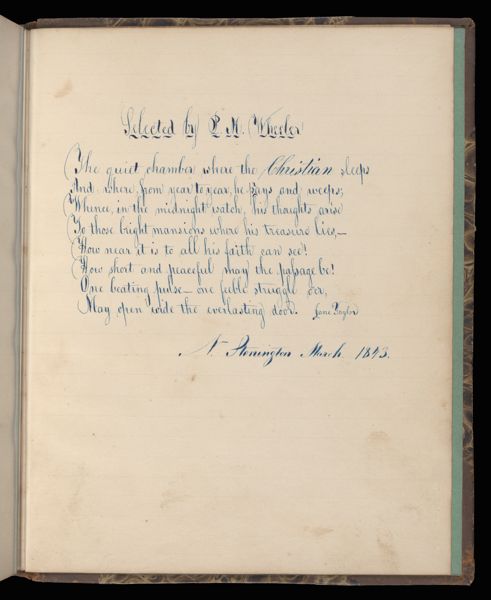 Selected by E. M. Wheeler
The quiet chamber where the Christian sleeps
And where from year to year, he prays and weeps;
Whence, in the midnight watch, his thoughts arise
To those bright mansions where his treasure lies,—
How near it is to all his faith can see!
How short and peaceful may the passage be!
One beating pulse — one feeble struggle o'er,
May open wide the everlasting door. Jane Taylor
N. Stonington March 1843.